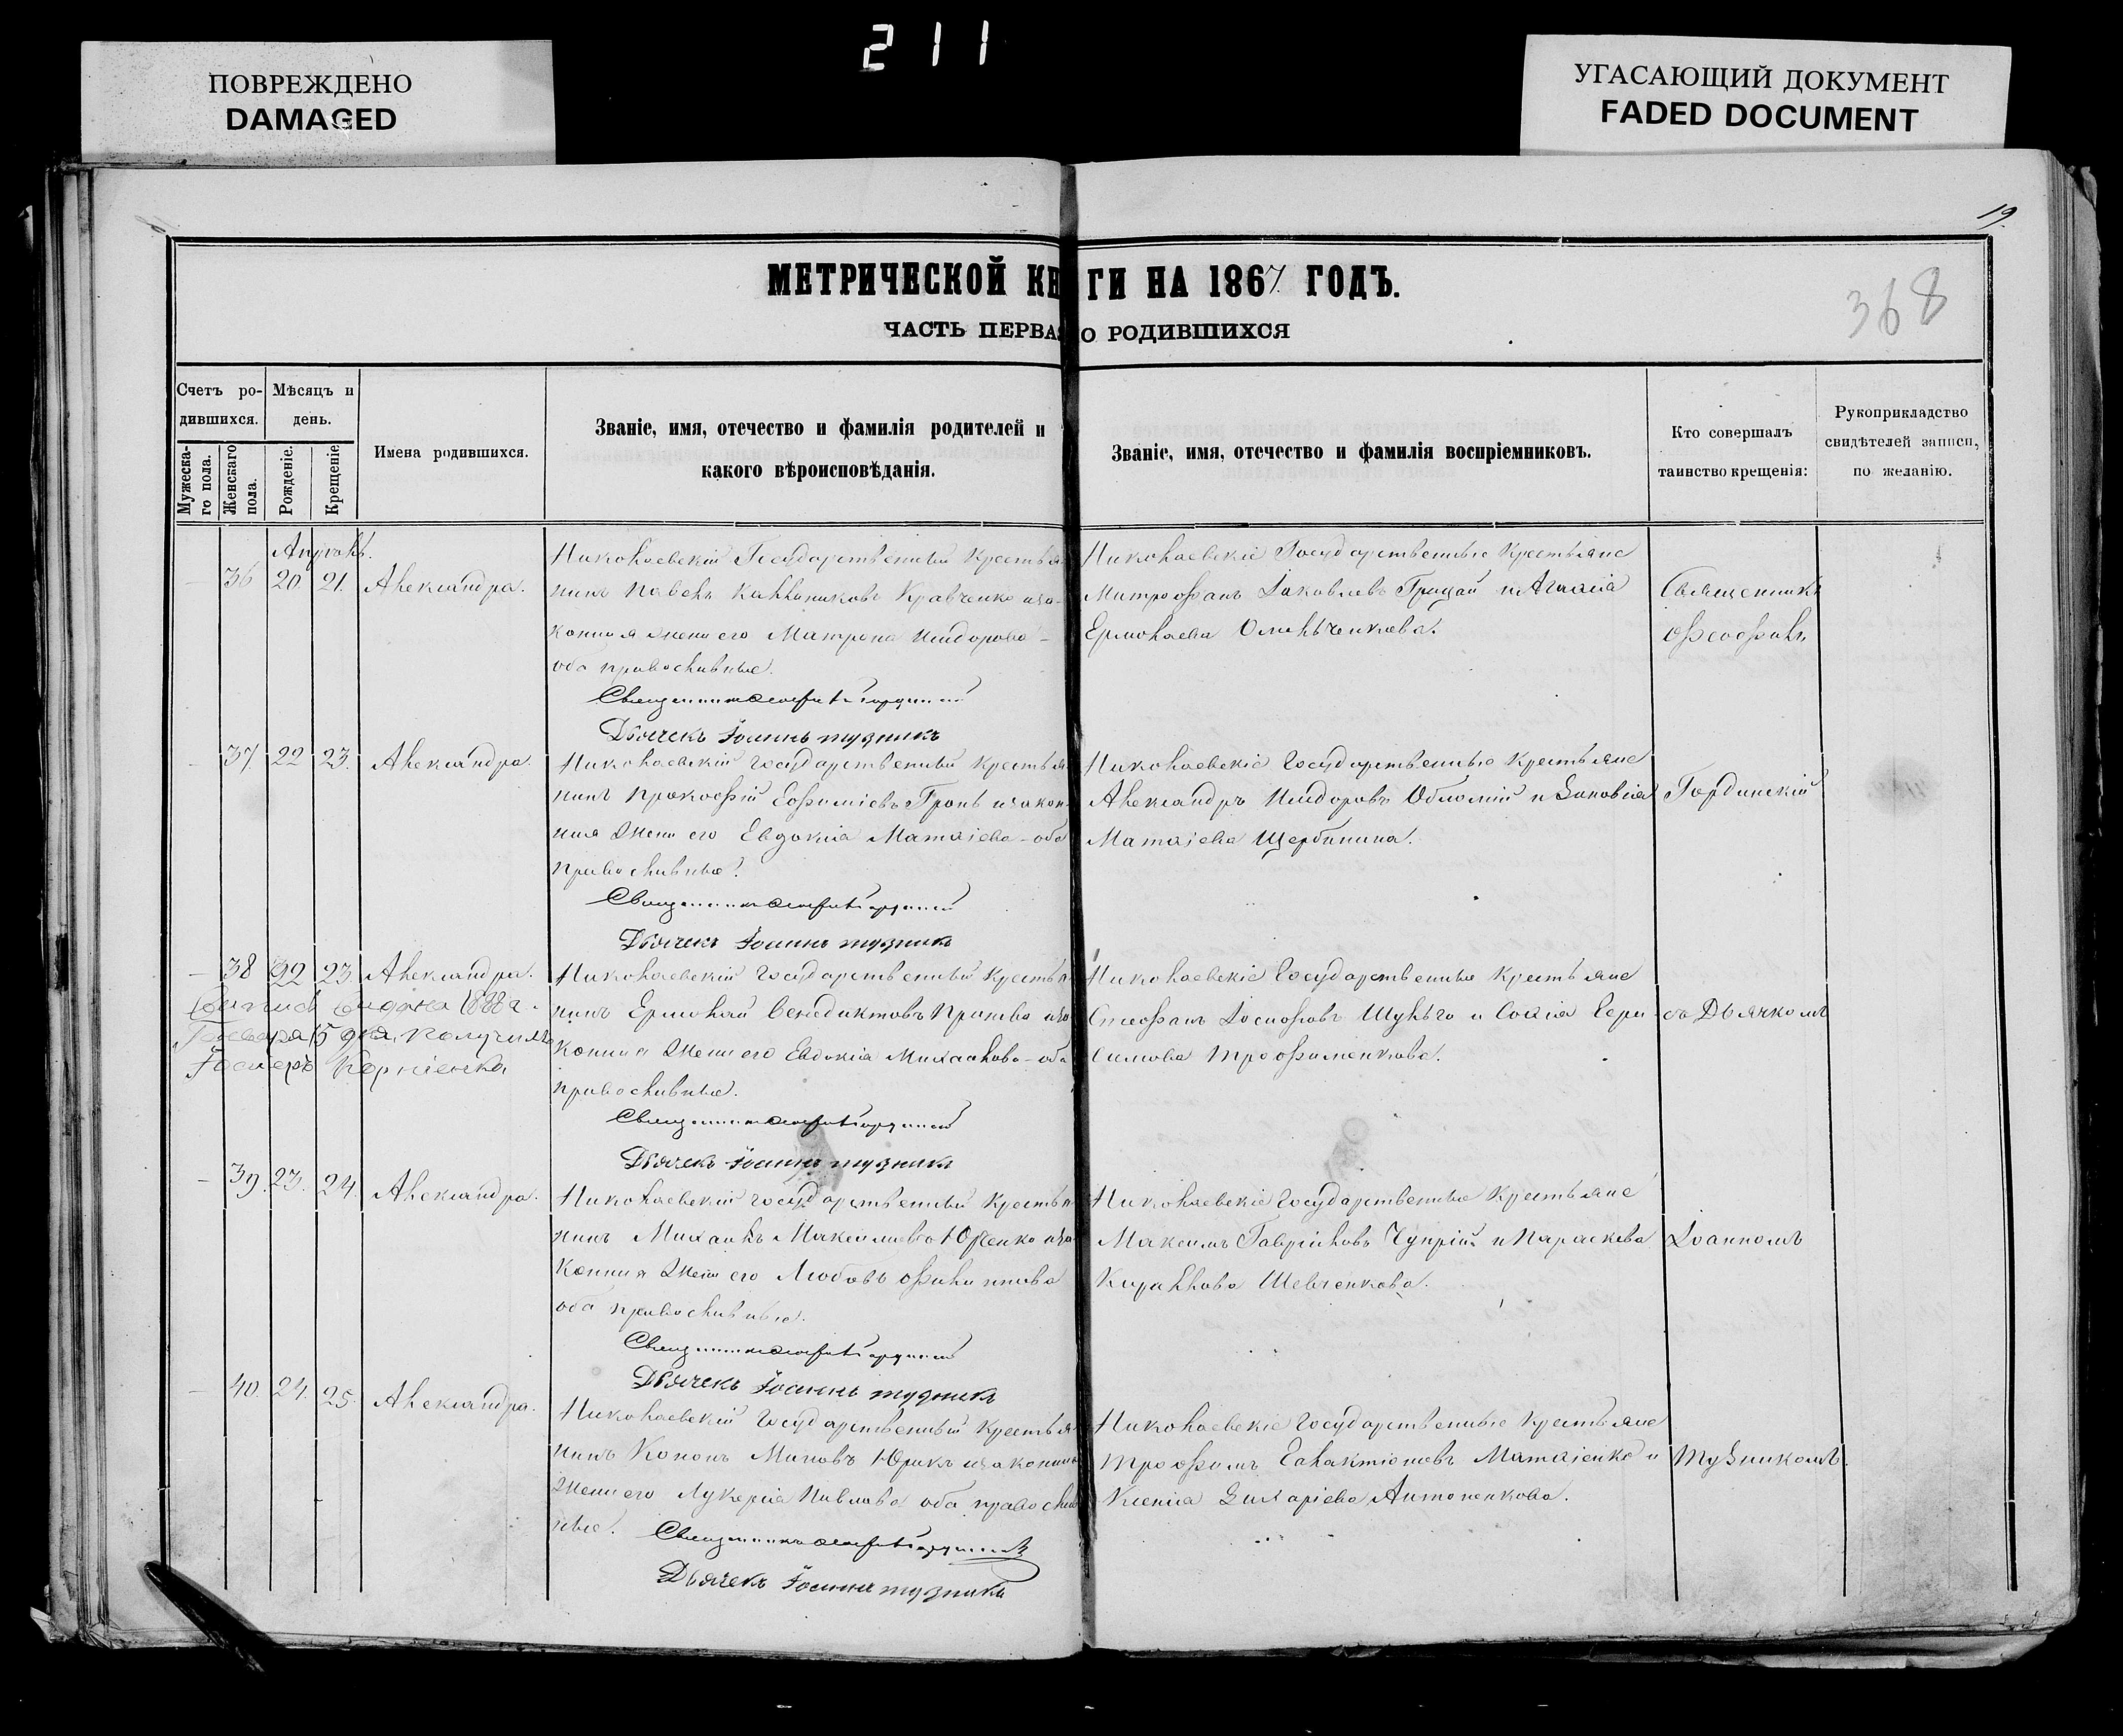 211
ПОВРЕЖДЕНО
DAMAGED
УГАСАЮЩИЙ ДОКУМЕНТ
FADED DOCUMENT
19.
368
МЕТРИЧЕСКОЙ КНИГИ НА 1867 ГОДЪ.
ЧАСТЬ ПЕРВАЯ О РОДИВШИХСЯ
Счетъ ро-
дившихся.
Мѣсяцъ и
день.
Мужеска-
го пола.
Женскаго
пола.
Рожденіе.
Крещеніе.
Имена родившихся.
Званіе, имя, отечество и фамилія родителей и
какого вѣроисповѣданія.
Званіе, имя, отечество и фамилія воспріемниковъ.
Кто совершалъ
таинство крещенія:
Рукоприкладство
свидѣтелей записи,
по желанію.
Апрѣль.
36 20. 21. Александра.
Николаевскій Государственный Крестья-
нинъ Павелъ Каллиниковъ Кравченко и за-
конная жена его Матрона Исидорова -
оба православные.
Священникъ
Дьячекъ Іоаннъ Тузникъ
Николаевскіе Государственные Крестьяне
Митрофанъ Іаковлевъ Грицай и Агафія
Ермолаева
Священникъ
Ѳеофилъ
37. 22 23. Александра.
Николаевскій Государственный Крестья-
нинъ Прокофій Евфиміевъ и закон-
ная жена его Евдокія Матвіева - оба
православные.
Священникъ
Дьячекъ Іоаннъ Тузникъ
Николаевскіе Государственные Крестьяне
Александръ Исидоровъ и Зиновія
Матвіева Щербинина.
Гординскій
38 22 23. Александра.
Николаевскій Государственный Крестья-
нинъ Ермолай Венедиктовъ и за-
конная жена его Евдокія Михайлова - оба
православные.
Священникъ
Дьячекъ Іоаннъ Тузникъ
выдана 1888 г.
15 дня, получилъ
Корніенко
Николаевскіе Государственные Крестьяне
Стефанъ Іосифовъ Шульга и Софія
Трофименкова.
съ Дьячкомъ
39. 23. 24. Александра.
Николаевскій Государственный Крестья-
нинъ Михаилъ Максимовъ Юрченко и за-
конная жена его Любовь Филиппова
оба православные.
Священникъ
Дьячекъ Іоаннъ Тузникъ
Николаевскіе Государственные Крестьяне
Максимъ Гавріиловъ Чупрій и Параскева
Кириллова Шевченкова.
Іоанномъ
40. 24. 25. Александра.
Николаевскій Государственный Крестья-
нинъ Кононъ Миновъ и законная
жена его Лукерія Павлова оба православ-
ные.
Священникъ
Дьячекъ Іоаннъ Тузникъ
Николаевскіе Государственные Крестьяне
Трофимъ Галактіоновъ Матвіенко и
Ксенія Захаріева Антоненкова.
Тузникомъ.